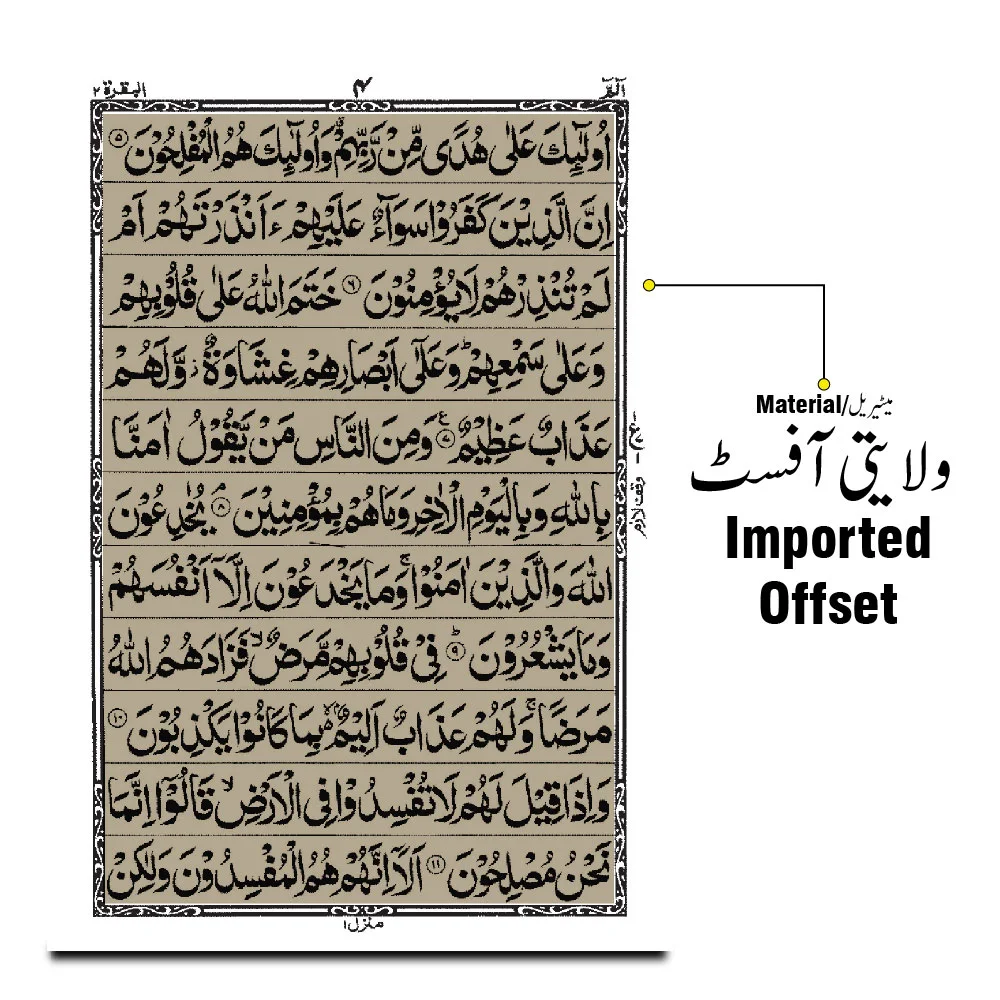 الٓمّٓ ۱
۴
البقرۃ ۲
اُولٰٓئِكَ عَلٰى هُدًى مِّنْ رَّبِّهِمْ ۗ وَاُولٰٓئِكَ هُمُ الْمُفْلِحُوْنَ ۵
اِنَّ الَّذِيْنَ كَفَرُوْا سَوَآءٌ عَلَيْهِمْ ءَاَنْذَرْتَهُمْ اَمْ
لَمْ تُنْذِرْهُمْ لَا يُؤْمِنُوْنَ ۶ خَتَمَ اللّٰهُ عَلٰى قُلُوْبِهِمْ
وَعَلٰى سَمْعِهِمْ ؕ وَعَلٰٓى اَبْصَارِهِمْ غِشَاوَةٌ ز وَّلَهُمْ
عَذَابٌ عَظِيْمٌ ۷ ع وَمِنَ النَّاسِ مَنْ يَّقُوْلُ اٰمَنَّا
بِاللّٰهِ وَبِالْيَوْمِ الْاٰخِرِ وَمَا هُمْ بِمُؤْمِنِيْنَ ۘ ۸ يُخٰدِعُوْنَ
اللّٰهَ وَالَّذِيْنَ اٰمَنُوْا ۚ وَمَا يَخْدَعُوْنَ اِلَّاۤ اَنْفُسَهُمْ
وَمَا يَشْعُرُوْنَ ؕ ۹ فِيْ قُلُوْبِهِمْ مَّرَضٌ ۙ فَزَادَهُمُ اللّٰهُ
مَرَضًا ۚ وَلَهُمْ عَذَابٌ اَلِيْمٌ ۢ ۙ بِمَا كَانُوْا يَكْذِبُوْنَ ۱۰
وَاِذَا قِيْلَ لَهُمْ لَا تُفْسِدُوْا فِى الْاَرْضِ ۙ قَالُوْۤا اِنَّمَا
نَحْنُ مُصْلِحُوْنَ ۱۱ اَلَاۤ اِنَّهُمْ هُمُ الْمُفْسِدُوْنَ وَلٰكِنْ
وقف لازم
منزل ۱
Material/میٹیریل
ولایتی آفسٹ
Imported
Offset